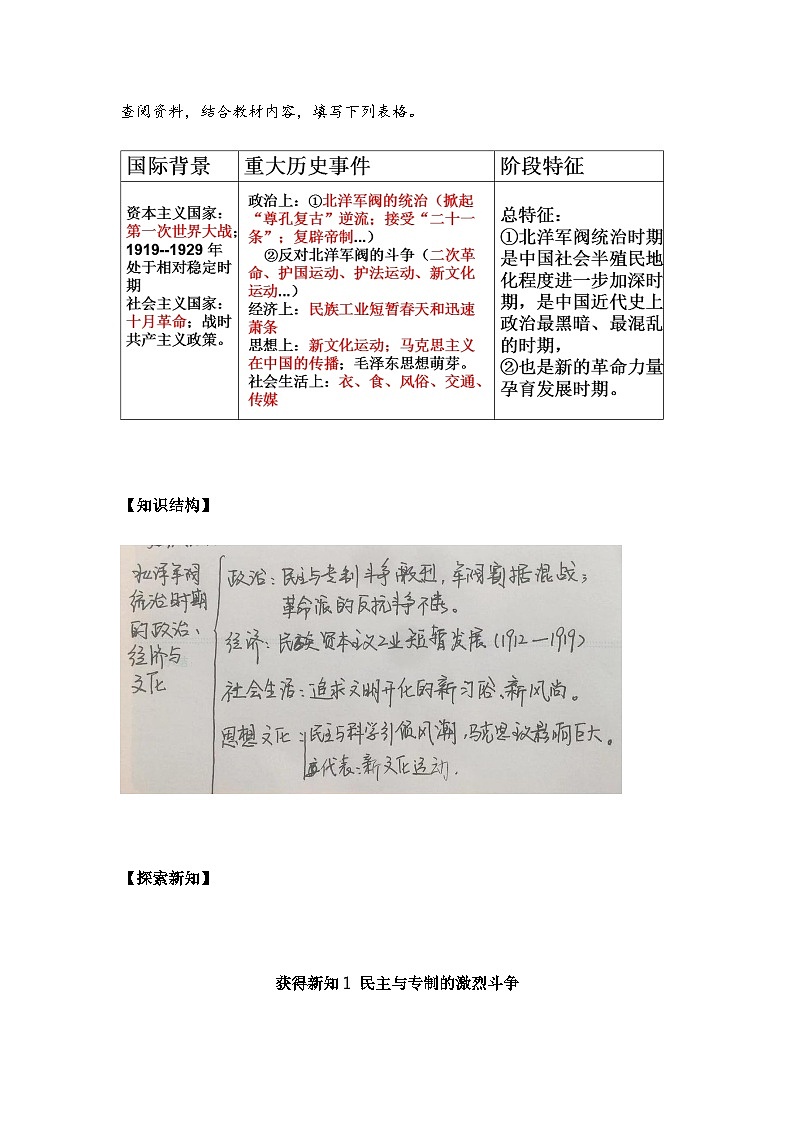 查阅资料，结合教材内容，填写下列表格。
国际背景
重大历史事件
阶段特征
资本主义国家：
第一次世界大战；
1919--1929 年
处于相对稳定时
期
社会主义国家：
十月革命；战时
共产主义政策。
政治上：①北洋军阀的统治（掀起
“尊孔复古”逆流；接受“二十一
条”；复辟帝制…）
②反对北洋军阀的斗争（二次革
命、护国运动、护法运动、新文化
运动…）
经济上：民族工业短暂春天和迅速
萧条
思想上：新文化运动；马克思主义
在中国的传播；毛泽东思想萌芽。
社会生活上：衣、食、风俗、交通、
传媒
总特征：
①北洋军阀统治时期
是中国社会半殖民地
化程度进一步加深时
期，是中国近代史上
政治最黑暗、最混乱
的时期，
②也是新的革命力量
孕育发展时期。
【知识结构】
北洋军阀
统治时期
的政治、
经济与
文化
政治：民主与专制斗争激烈，军阀割据混战；
革命派的反抗斗争不懈。
经济：民族资本主义工业短暂发展（1912—1919）
社会生活：追求文明开化的新习俗、新风尚。
思想文化：民主与科学引领风潮，马克思主义影响巨大。
代表：新文化运动.
【探索新知】
获得新知 1 民主与专制的激烈斗争